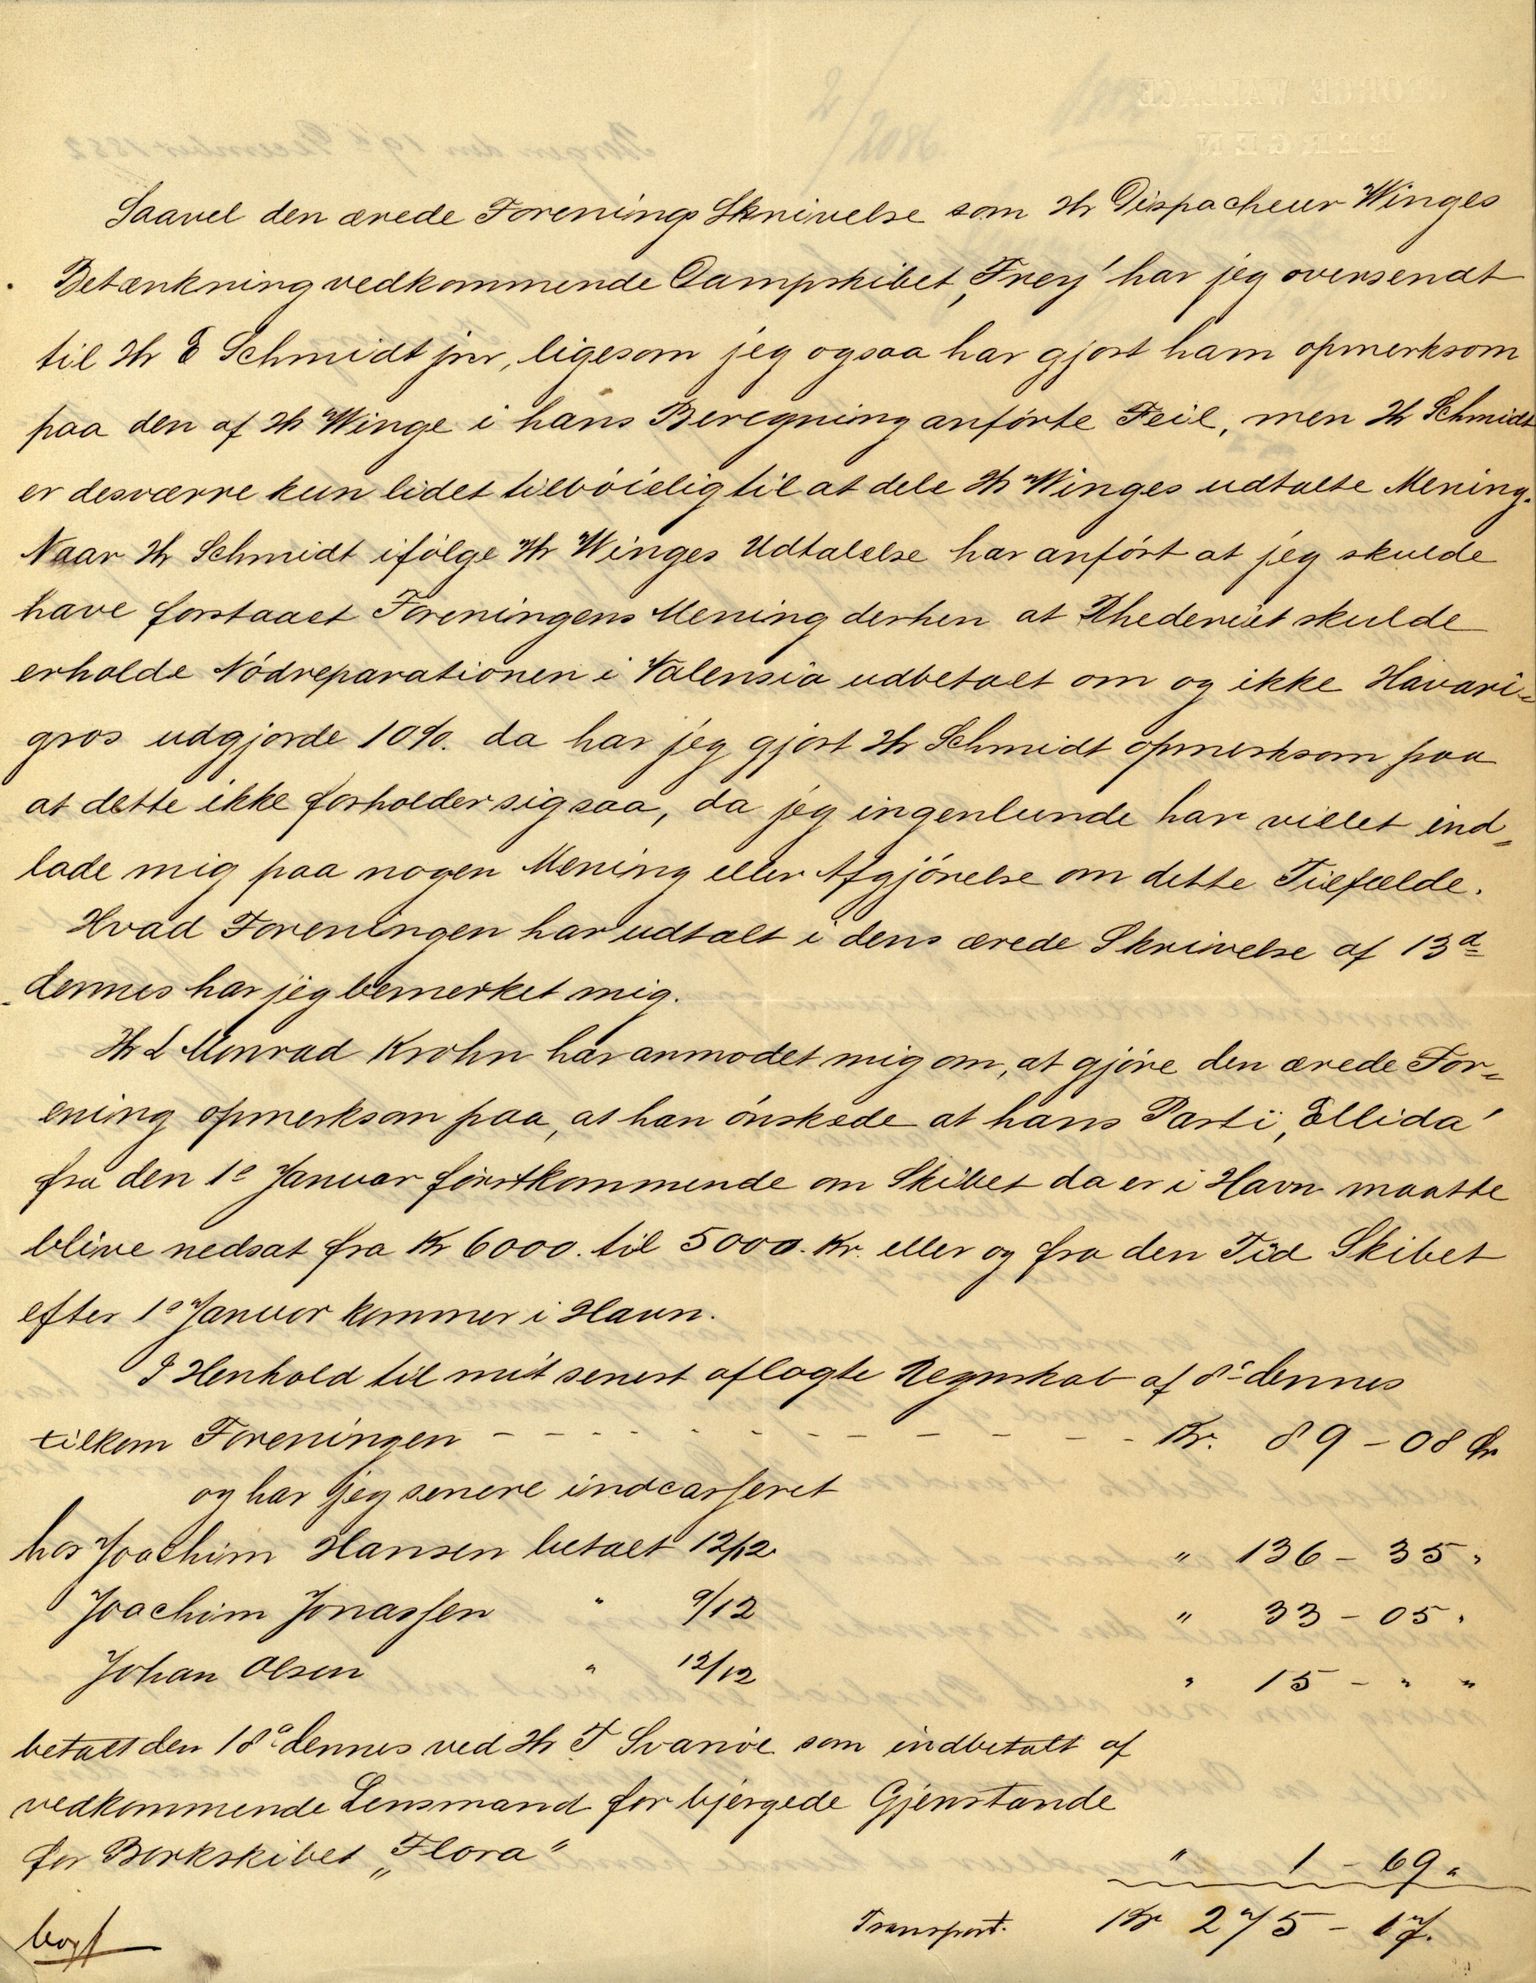 2/2086.
Saavel den ærede Forenings Skrivelse som Hr Dispacheur Winges
Betænkning vedkommende Dampskibet „Frey" har jeg oversendt
til Hr E Schmidt jnr, ligesom jeg ogsaa har gjort ham opmerksom
paa den af Hr Winge i hans Beregning anførte Feil, men Hr Schmidt
er desværre kun lidet tilbøielig til at dele Hr Winges udtalte Mening.
Naar Hr Schmidt ifølge Hr Winges Udtalelse har anført at jeg skulde
have forstaaet Foreningens Mening derhen at Rhederiet skulde
erholde Nødreparationen i Valensia udbetalt om og ikke Havari-
gros udgjorde 10%. da har jeg gjort Hr Schmidt opmerksom paa
at dette ikke forholder sig saa, da jeg ingenlunde har villet ind-
lade mig paa nogen Mening eller Afgjørelse om dette Tilfælde.
Hvad Foreningen har udtalt i dens ærede Skrivelse af 13d
dennes har jeg bemerket mig.
Hr L Monrad Krohn har anmodet mig om, at gjøre den ærede For-
ening opmerksom paa, at han ønskede at hans Parti „Ellida"
fra den 1e Januar førstkommende om Skibet da er i Havn maatte
blive nedsat fra Kr 6000. til 5000. Kr. eller og fra den Tid Skibet
efter 1e Januar kommer i Havn.
I Henhold til mit senest aflagte Regnskab af 8de dennes
tilkom Foreningen - - - - - - - - - - - - Kr. 89 - 08 Ør
og har jeg senere indcasseret
hos Joachim Hansen betalt 12/12 " 136 - 35 "
Joachim Jonassen " 9/12 " 33 - 05 "
Johan Olsen " 12/12 " 15 - " "
betalt den 18de dennes ved Hr T Svanøe som indbetalt af
vedkommende Lensmand for bjergede Gjenstande
for Barkskibet „Flora" " 1 - 69 "
Transport. Kr 275 - 17.